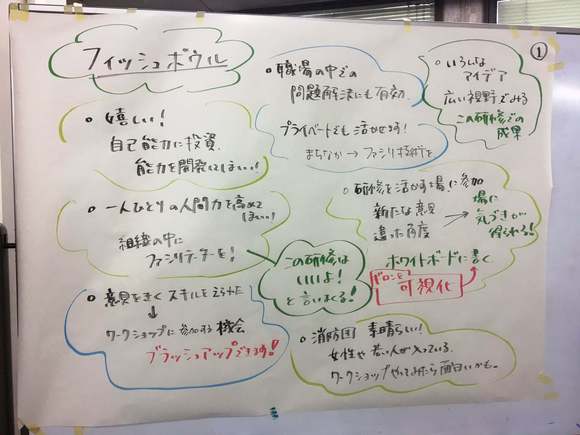 フィッシュボウル
①
○ 嬉しい!
自己能力に投資
能力を開発してほしい!
○ 一人ひとりの人間力を高めて
ほしい!
組織の中に
ファシリテーターを!
○ 意見をきくスキルをえられた
↓
ワークショップに参加する機会
ブラッシュアップできます!!
○ 職場の中での
問題解決にも有効
プライベートでも活かせます!
まちなか→ファシリ技術を
○ いろんな
アイデア
広い視野でみる
この研修での
成果
○ 研修を活かす場に参加
新たな意見
違った角度
→ 場に
気づきが
得られる!!
ホワイトボードに書く
可視化
この研修は
いいよ!
と言いまくる!
○ 消防団 素晴らしい!
女性や若い人が入っている。
ワークショップやってみたら面白いかも。